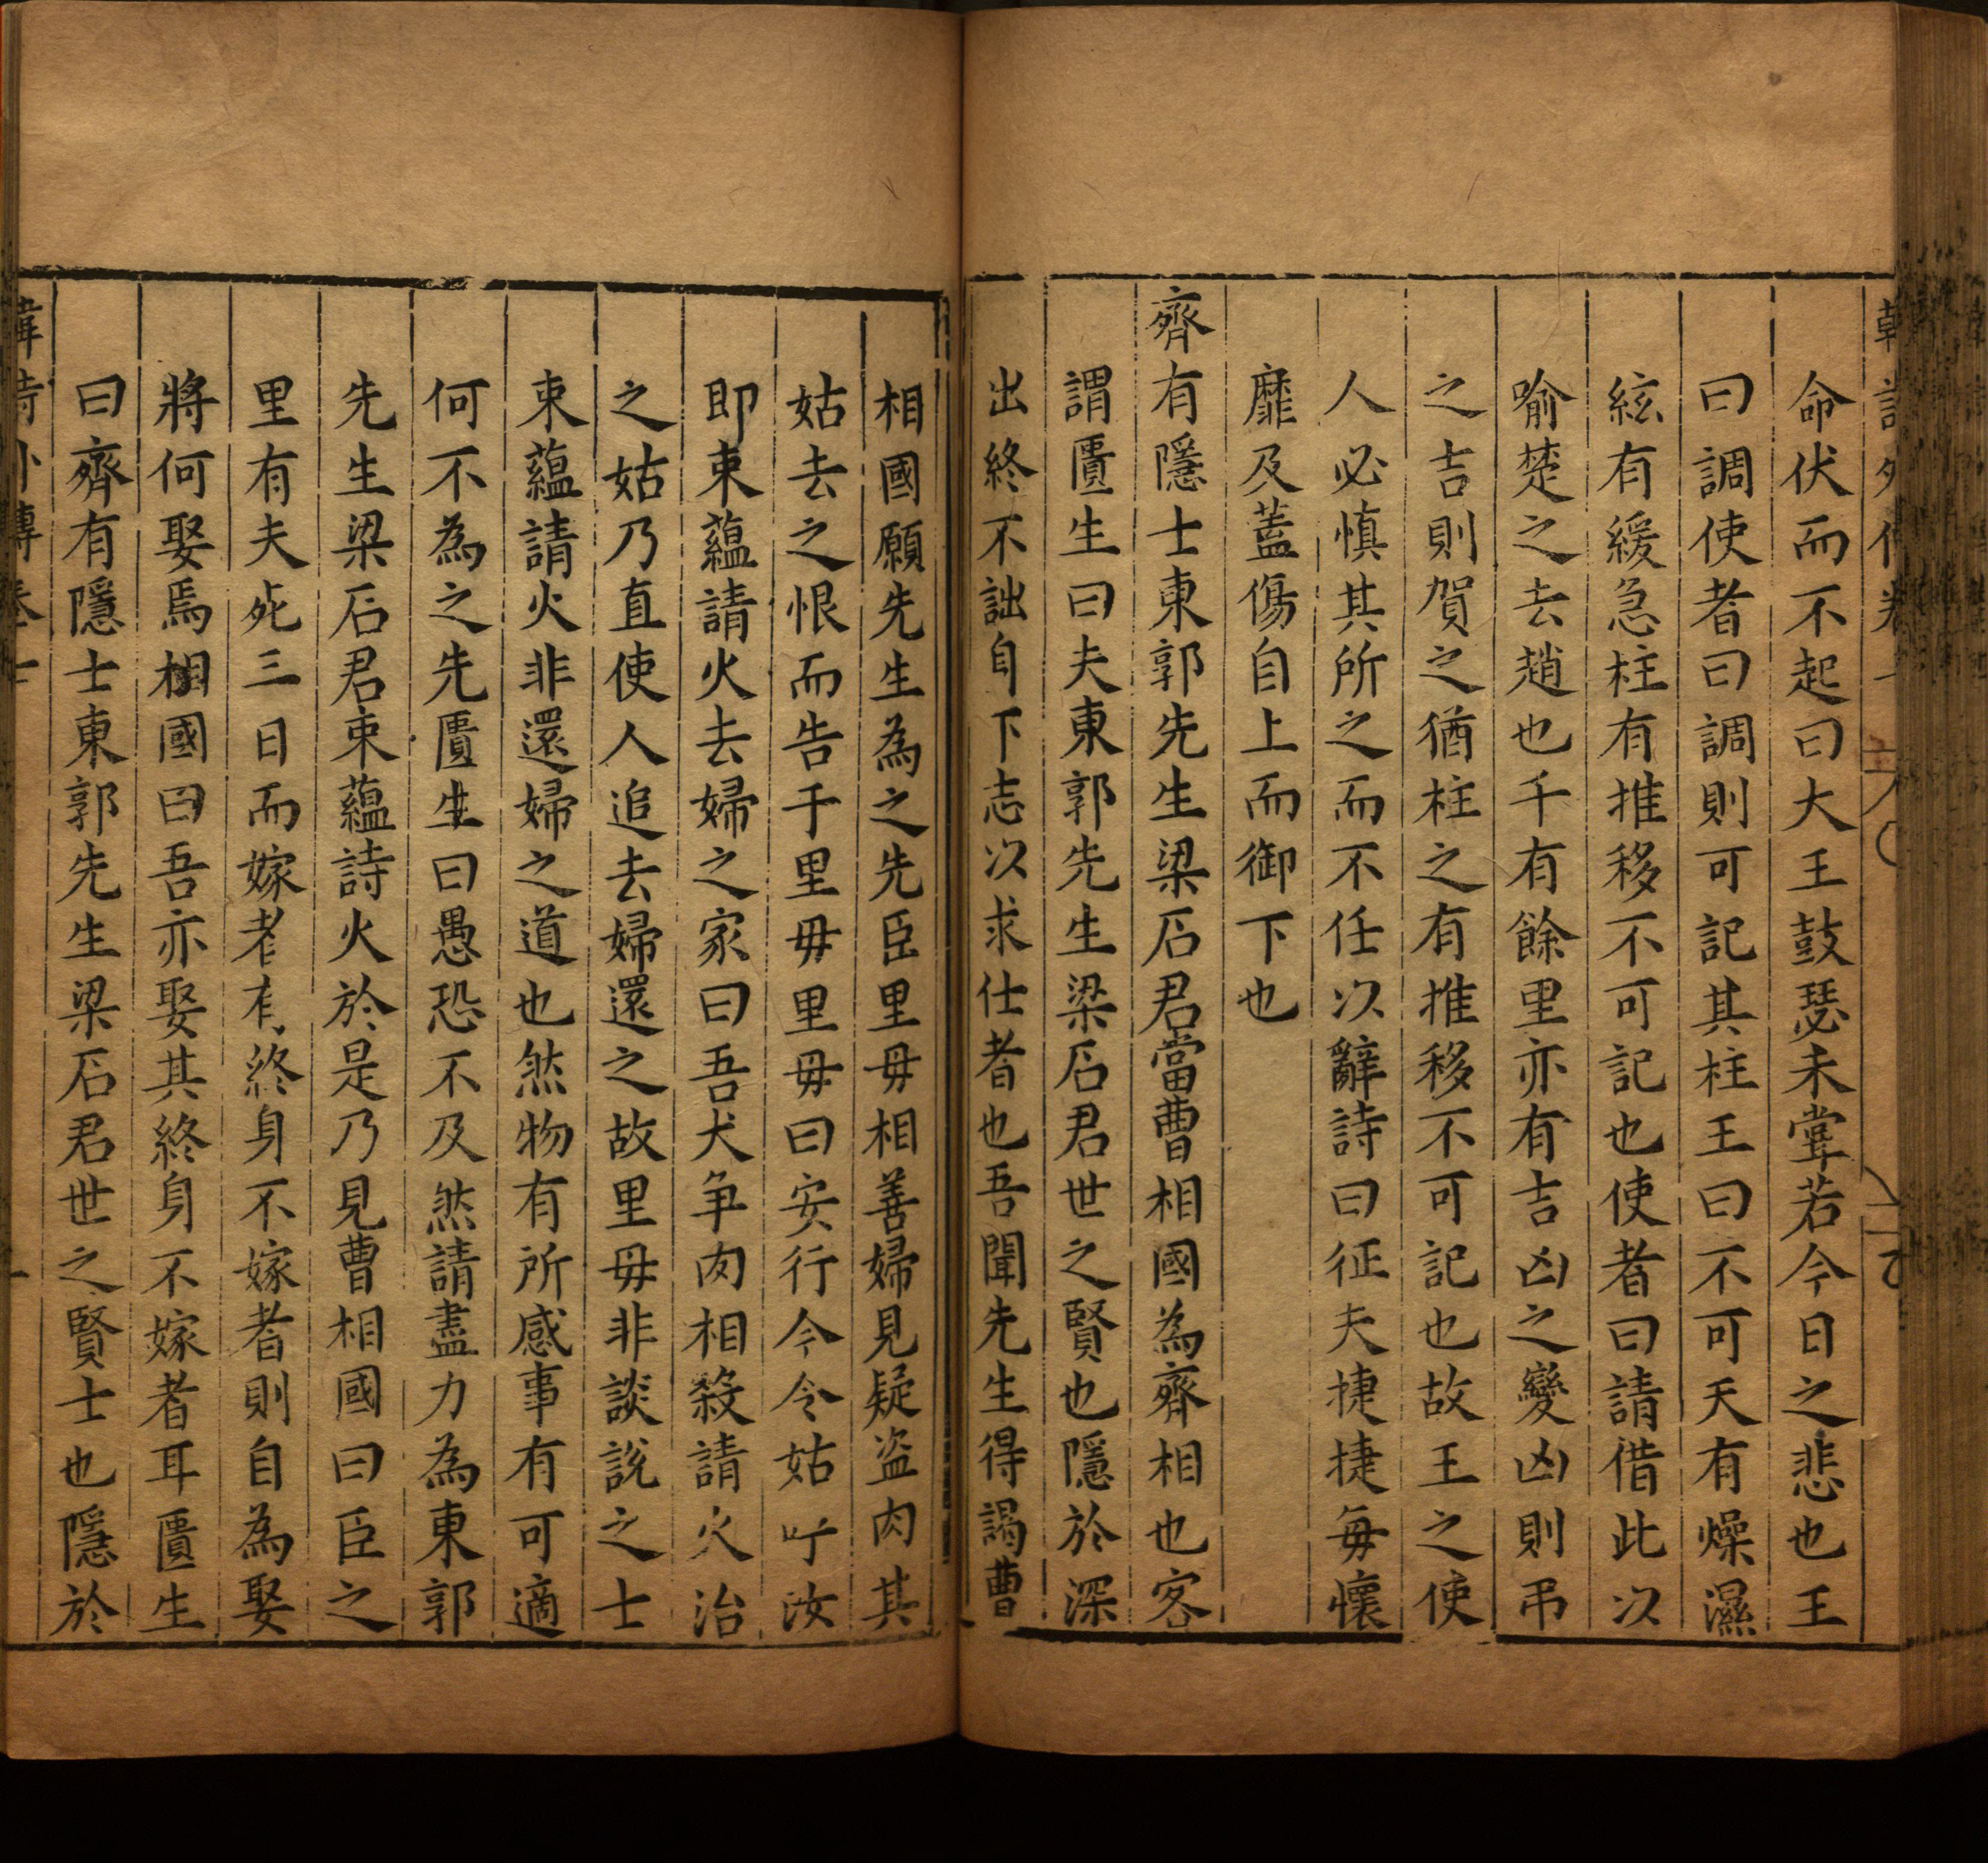 命伏而不起曰大王鼓瑟未甞若今日之悲也王
曰調使者曰調則可記其柱王曰不可天有燥濕
絃有緩急柱有推移不可記也使者曰請借此以
喻楚之去趙也千有餘里亦有吉凶之變凶則弔
之吉則賀之猶柱之有推移不可記也故王之使
人必慎其所之而不任以辭詩曰征夫捷捷每懷
靡及蓋傷自上而御下也
齊有隱士東郭先生梁石君當曹相國為齊相也客
謂匱生曰夫東郭先生梁石君世之賢也隱於深
出終不詘自下志以求仕者也吾聞先生得謁曹
相國願先生為之先臣里毋相善婦見疑盜肉其
姑去之恨而告于里毋里毋曰安行今令姑呼汝
即束蘊請火去婦之家曰吾犬争肉相殺請火治
之姑乃直使人追去婦還之故里毋非談說之士
束蘊請火非還婦之道也然物有所感事有可適
何不為之先匱生曰愚恐不及然請盡力為東郭
先生梁石君束蘊詩火於是乃見曹相國曰臣之
里有夫死三日而嫁者有終身不嫁者則自為娶
將何娶焉相國曰吾亦娶其終身不嫁者耳匱生
曰齊有隱士東郭先生梁石君世之賢士也隱於